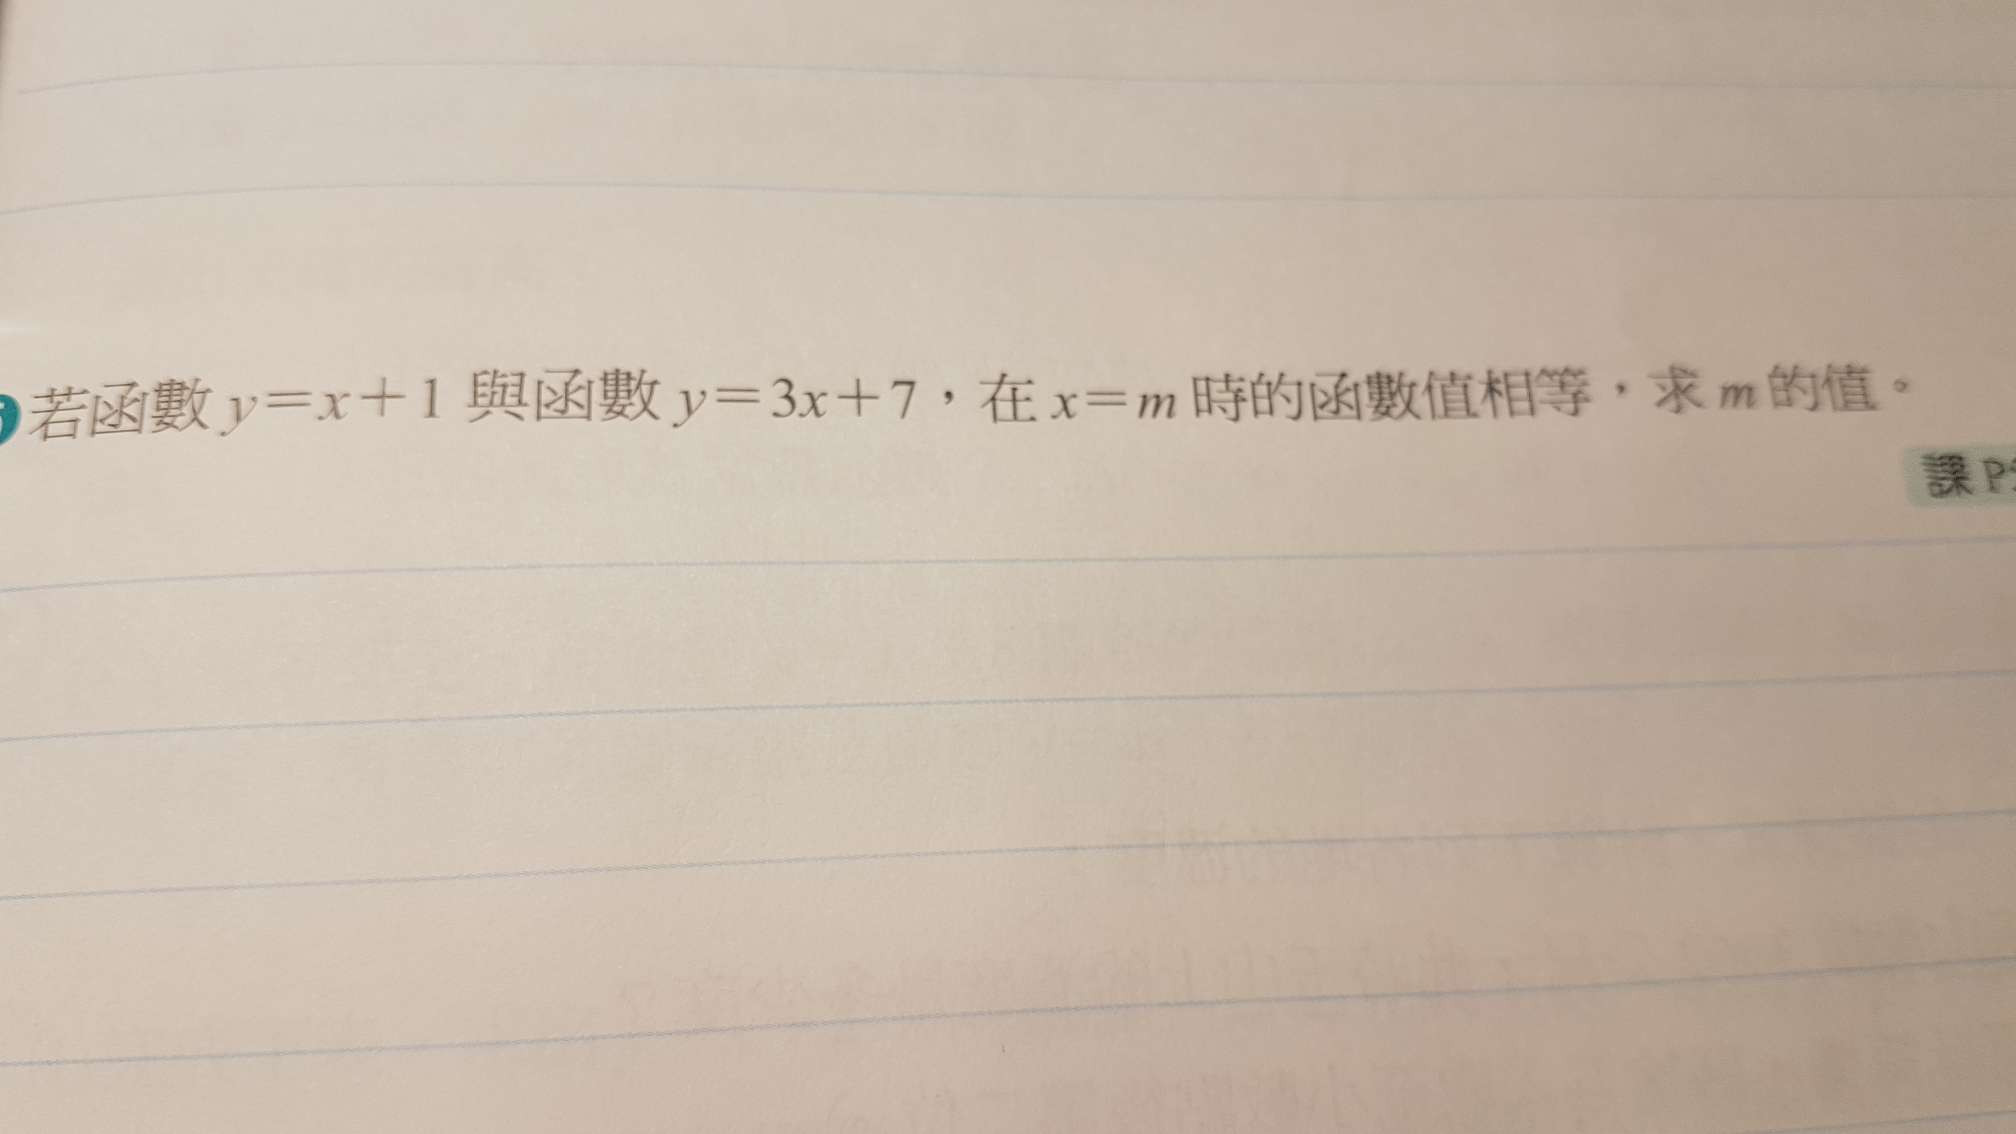 若函數 y=x+1 與函數 y=3x+7，在 x=m 時的函數值相等，求 m 的值。
課 P